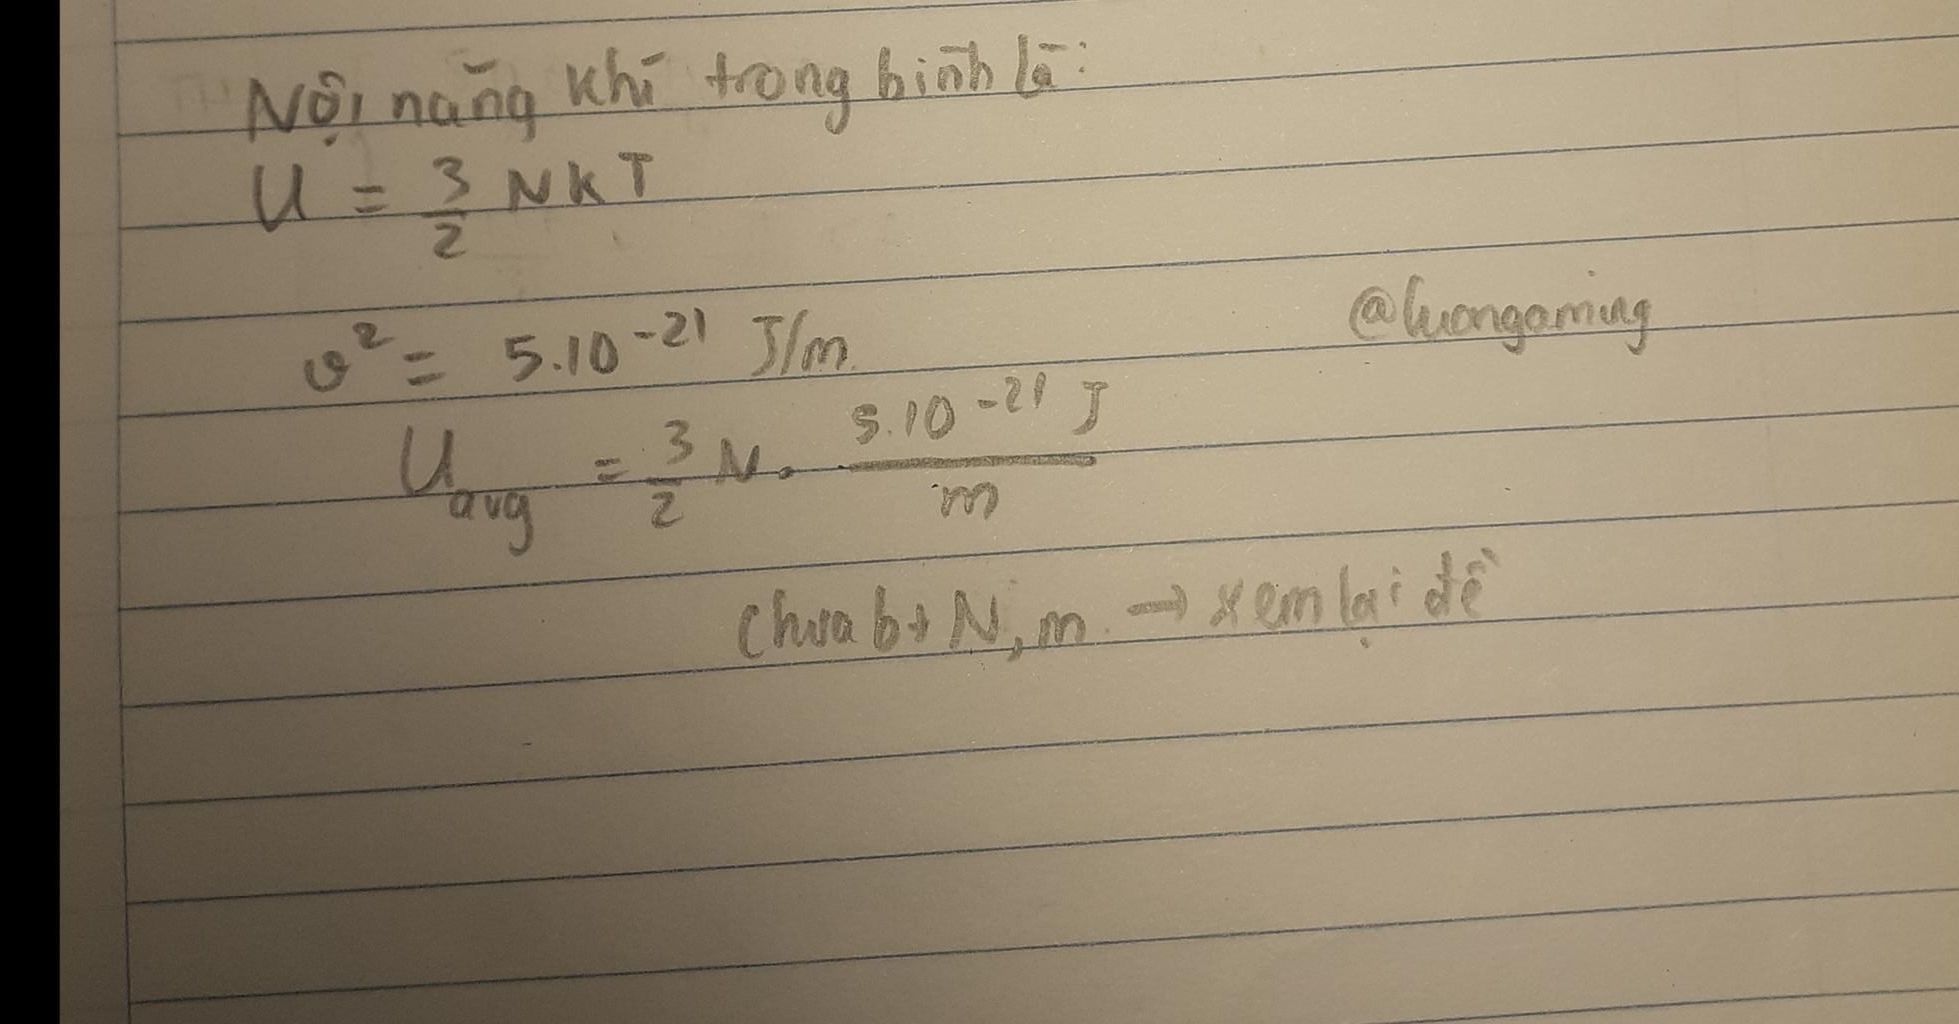 Nội năng khí trong bình là:
U = 3/2 NkT
v² = 5.10⁻²¹ J/m.
@luongaming
U avg = 3/2 N. 5.10⁻²¹ J / m
Chưa bt N, m. → xem lại đề